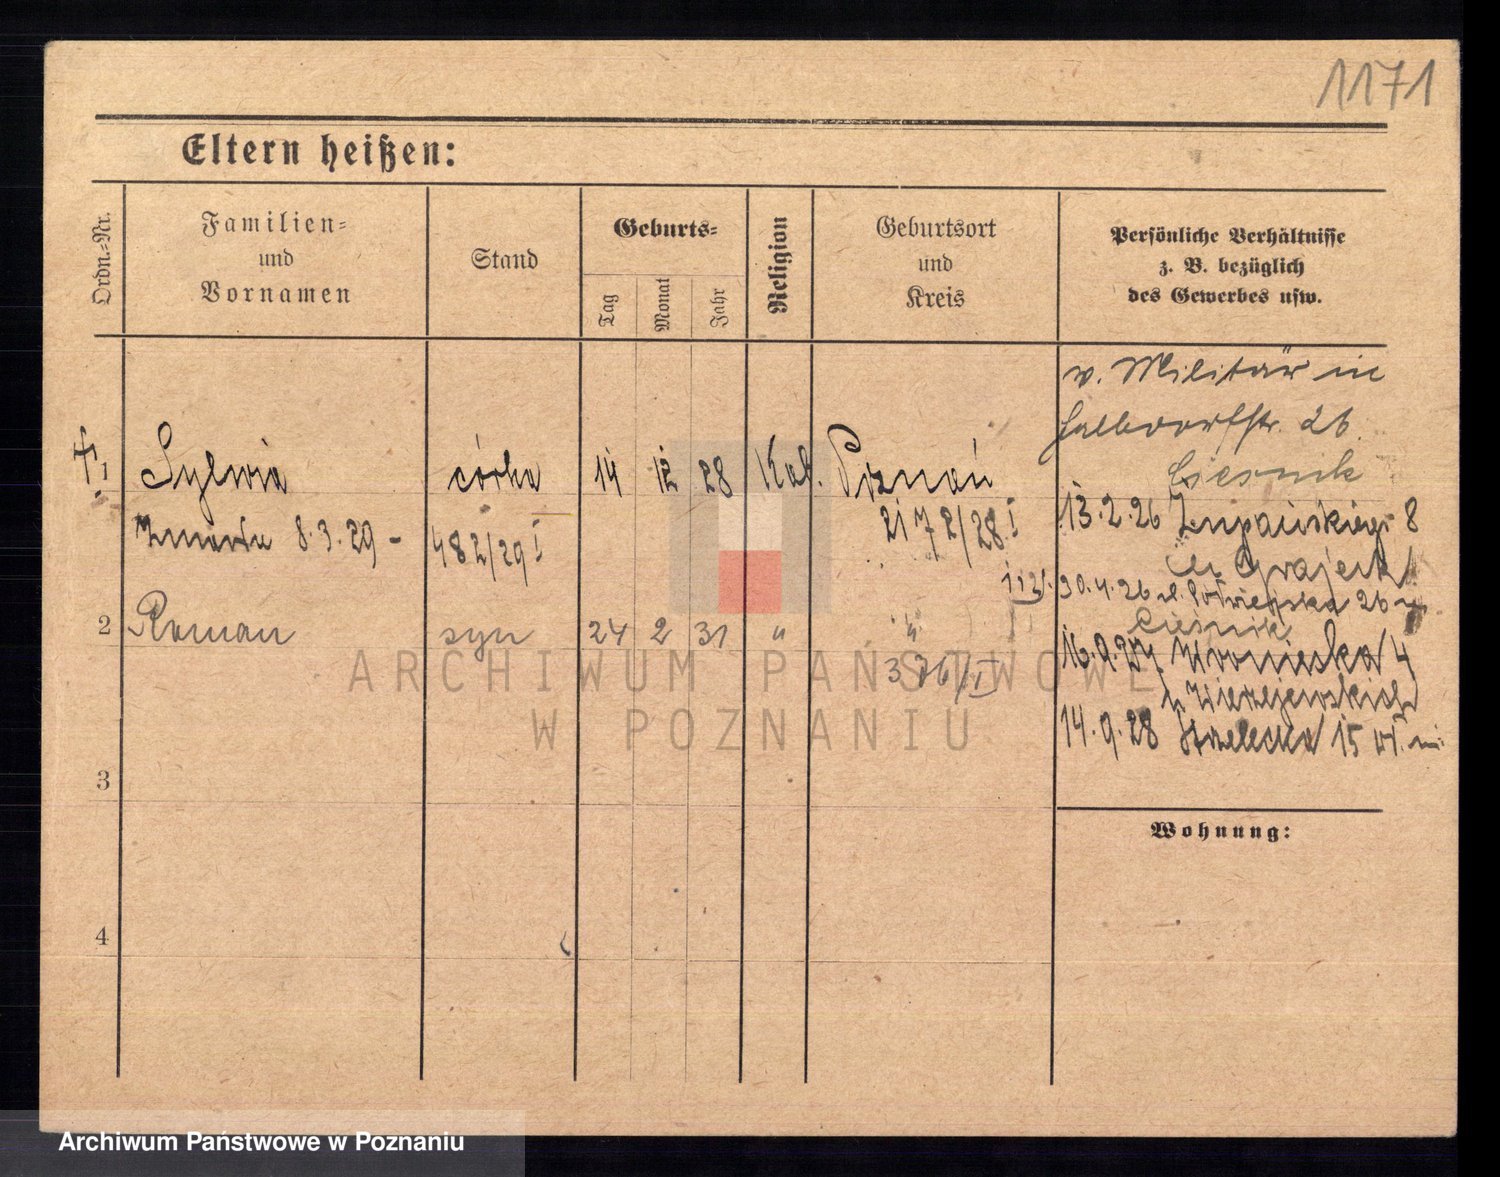 1171
Eltern heißen:
Ordn.-Nr.
Familien-
und
Vornamen
Stand
Geburts-
Tag
Monat
Jahr
Religion
Geburtsort
und
Kreis
Persönliche Verhältnisse
z. B. bezüglich
des Gewerbes usw.
v. Militär in
Halbdorfstr. 26
Cieśnik
1 Sylwia córka 14 12 28 Kat. Poznań
2172/28 I
Zmarła 8.3.29 - 482/29 I
13.2.26 Żupańskiego 8
Grajek
30.4.26
26
2 Roman syn 24 2 31 " "
Cieśnik
16.9.27 Wroniecka 4
14.9.28 Strzelecka 15
3
Wohnung:
4
ARCHIWUM PAŃSTWOWE
W POZNANIU
Archiwum Państwowe w Poznaniu